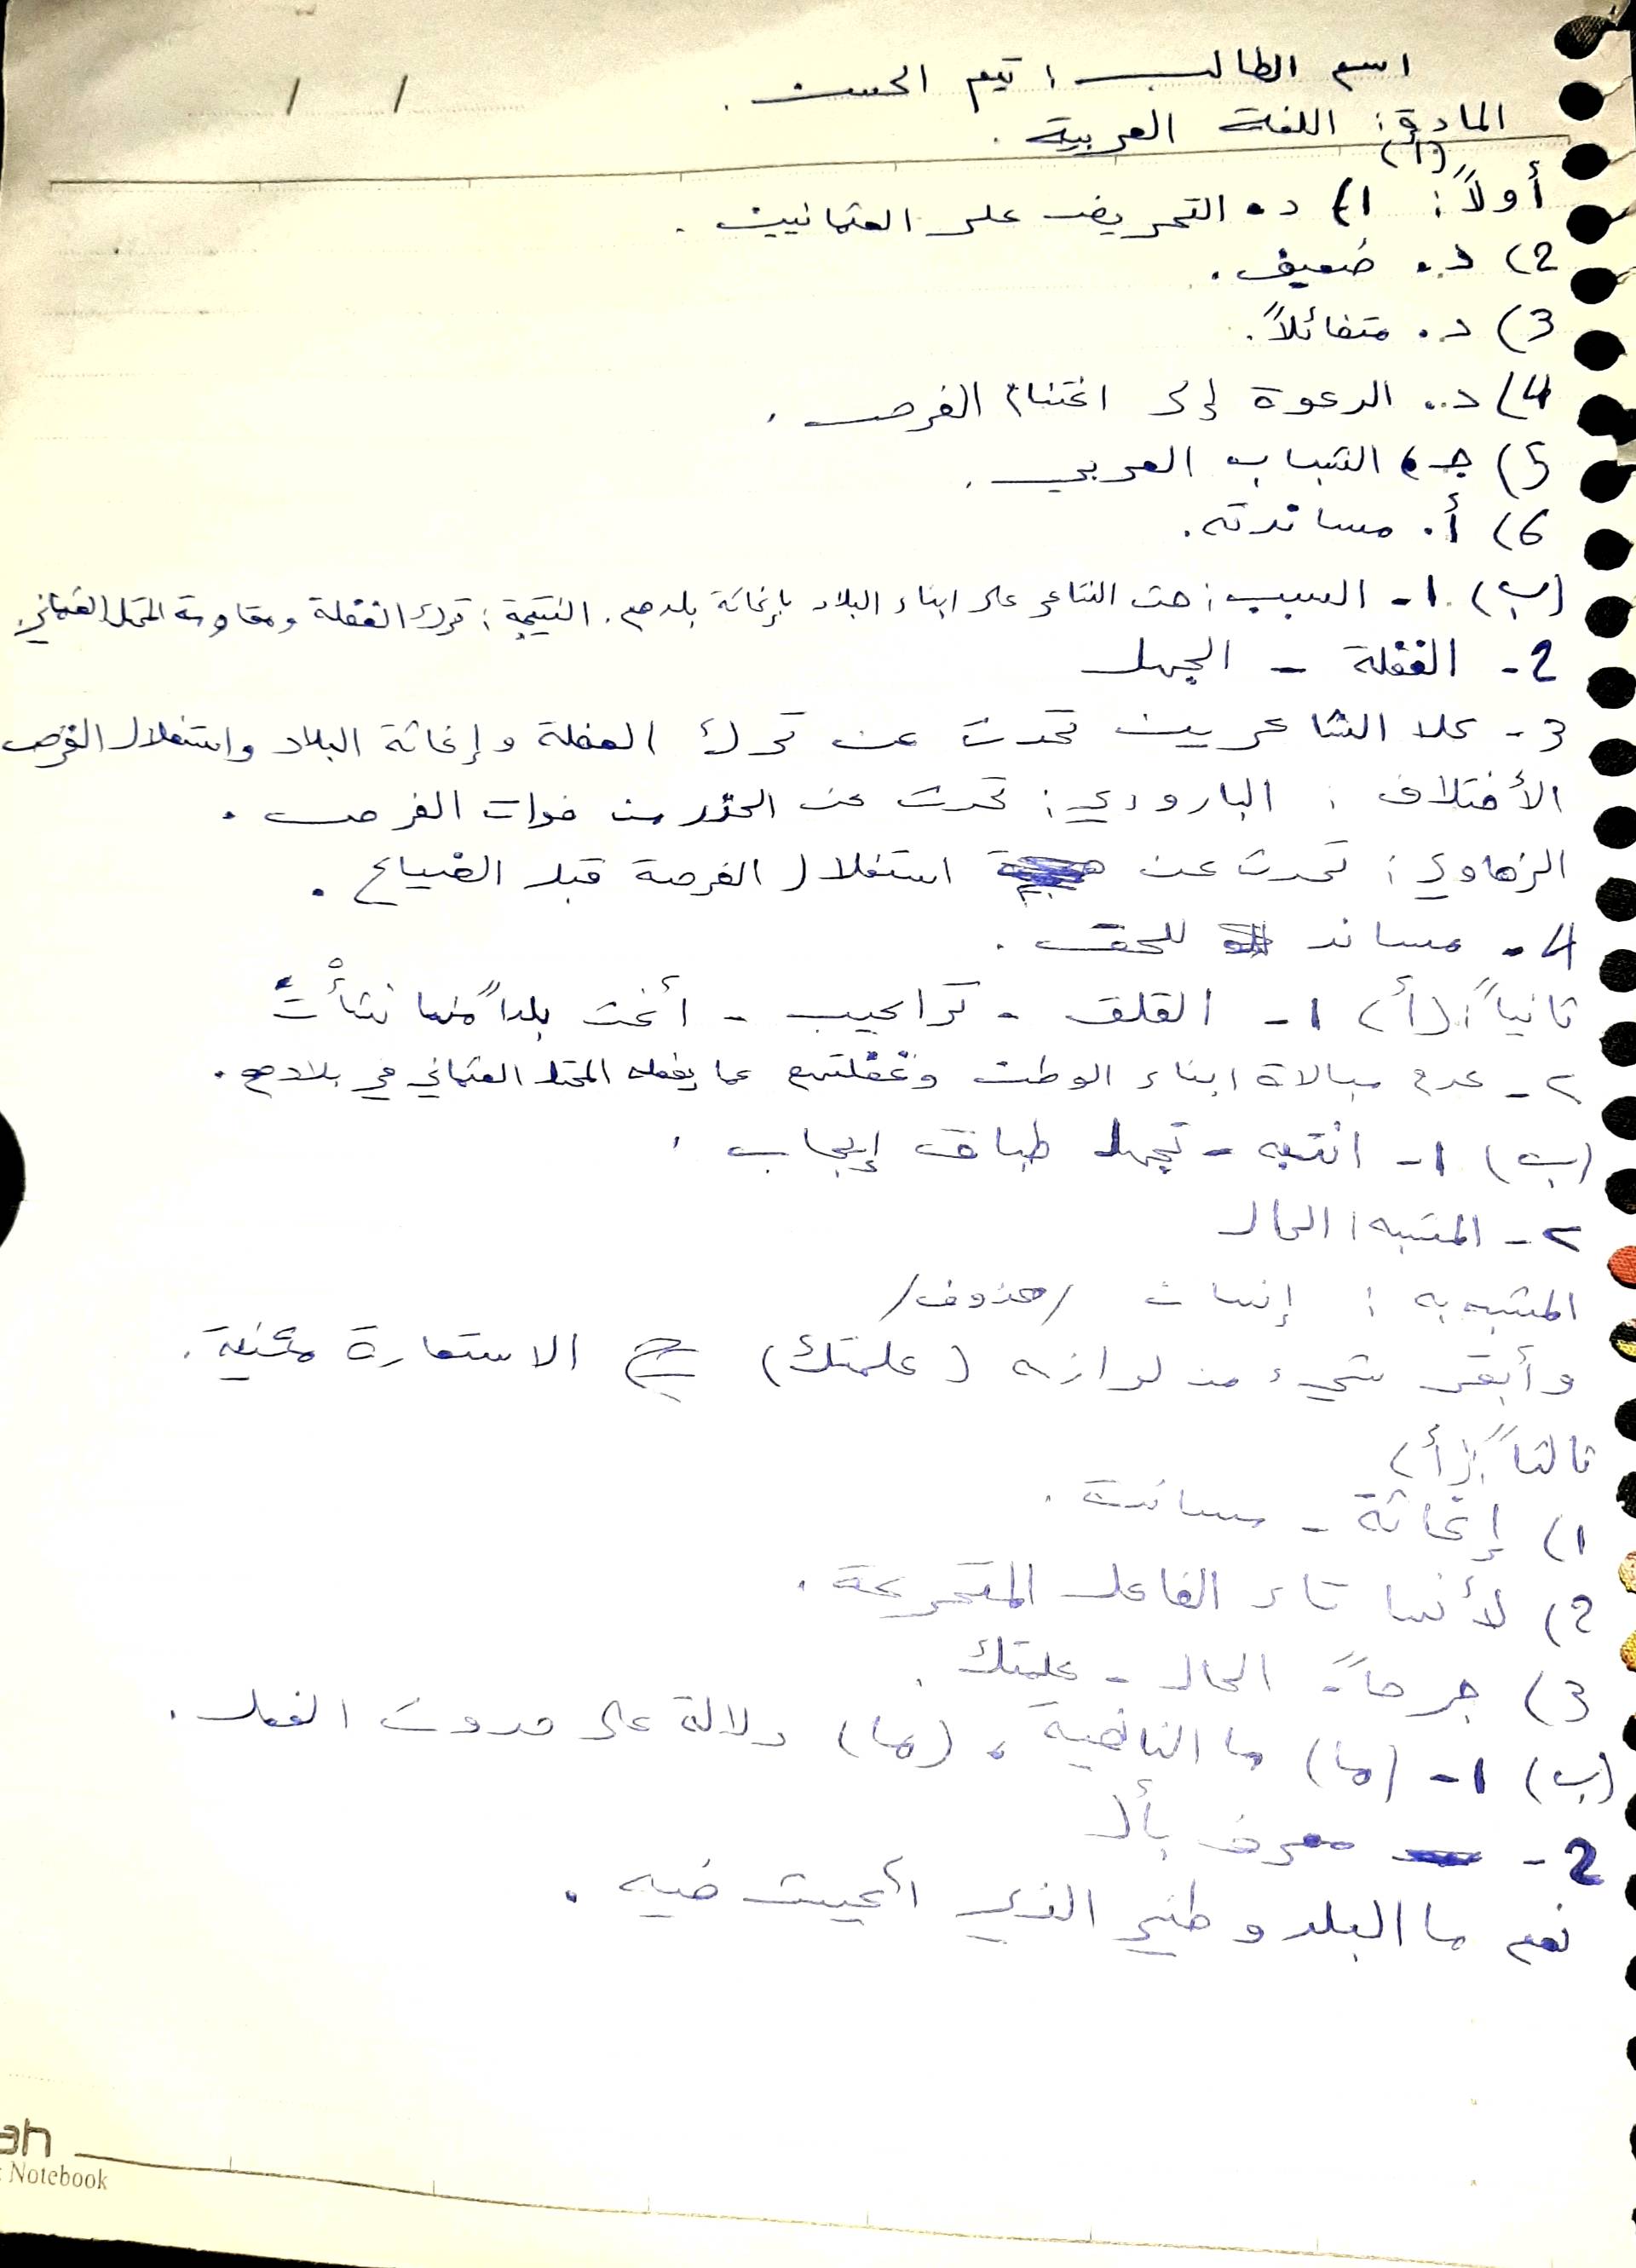 اسم الطالب: تيم الحسن.
/ /
المادة: اللغة العربية.
أولاً: (أ) 1) د. التحريض على العثمانيين.
2) د. ضعيف.
3) د. متفائلاً.
4) د. الدعوة إلى اغتنام الفرص.
5) جـ. الشباب العربي.
6) أ. مساندته.
(ب) 1- السبب: حث الشاعر على ابناء البلاد بإغاثة بلدهم. النتيجة: ترك الغفلة ومقاومة المحتل العثماني.
2- الغفلة - الجهل
3- كلا الشاعرين تحدث عن ترك الغفلة وإغاثة البلاد واستغلال الفرص
الأختلاف: البارودي: تحدث عن الحذر من فوات الفرص.
الزهاوي: تحدث عن استغلال الفرصة قبل الضياع.
4- مساند للحق.
ثانياً: (أ) 1- القلق - تراكيب - أغث بلداً منها نشأت
٢- عدم مبالاة ابناء الوطن وغفلتهم عما يفعله المحتل العثماني في بلادهم.
(ب) 1- انتبه - تجهل طباق إيجاب.
٢- المشبه: الحال
المشبه به: إنسان /محذوف/
وأبقى شيء من لوازمه (علمتك) الاستعارة مكنية.
ثالثاً: (أ)
1) إغاثة - مساندة.
2) لأنها تاء الفاعل المتحركة.
3) جرحاً - الحال - علمتك.
(ب) 1- (ما) ما النافية، (ما) دلالة على حدوث الفعل.
2- معرف بأل
نعم ما البلد وطني الذي أعيش فيه.
ah
Notebook